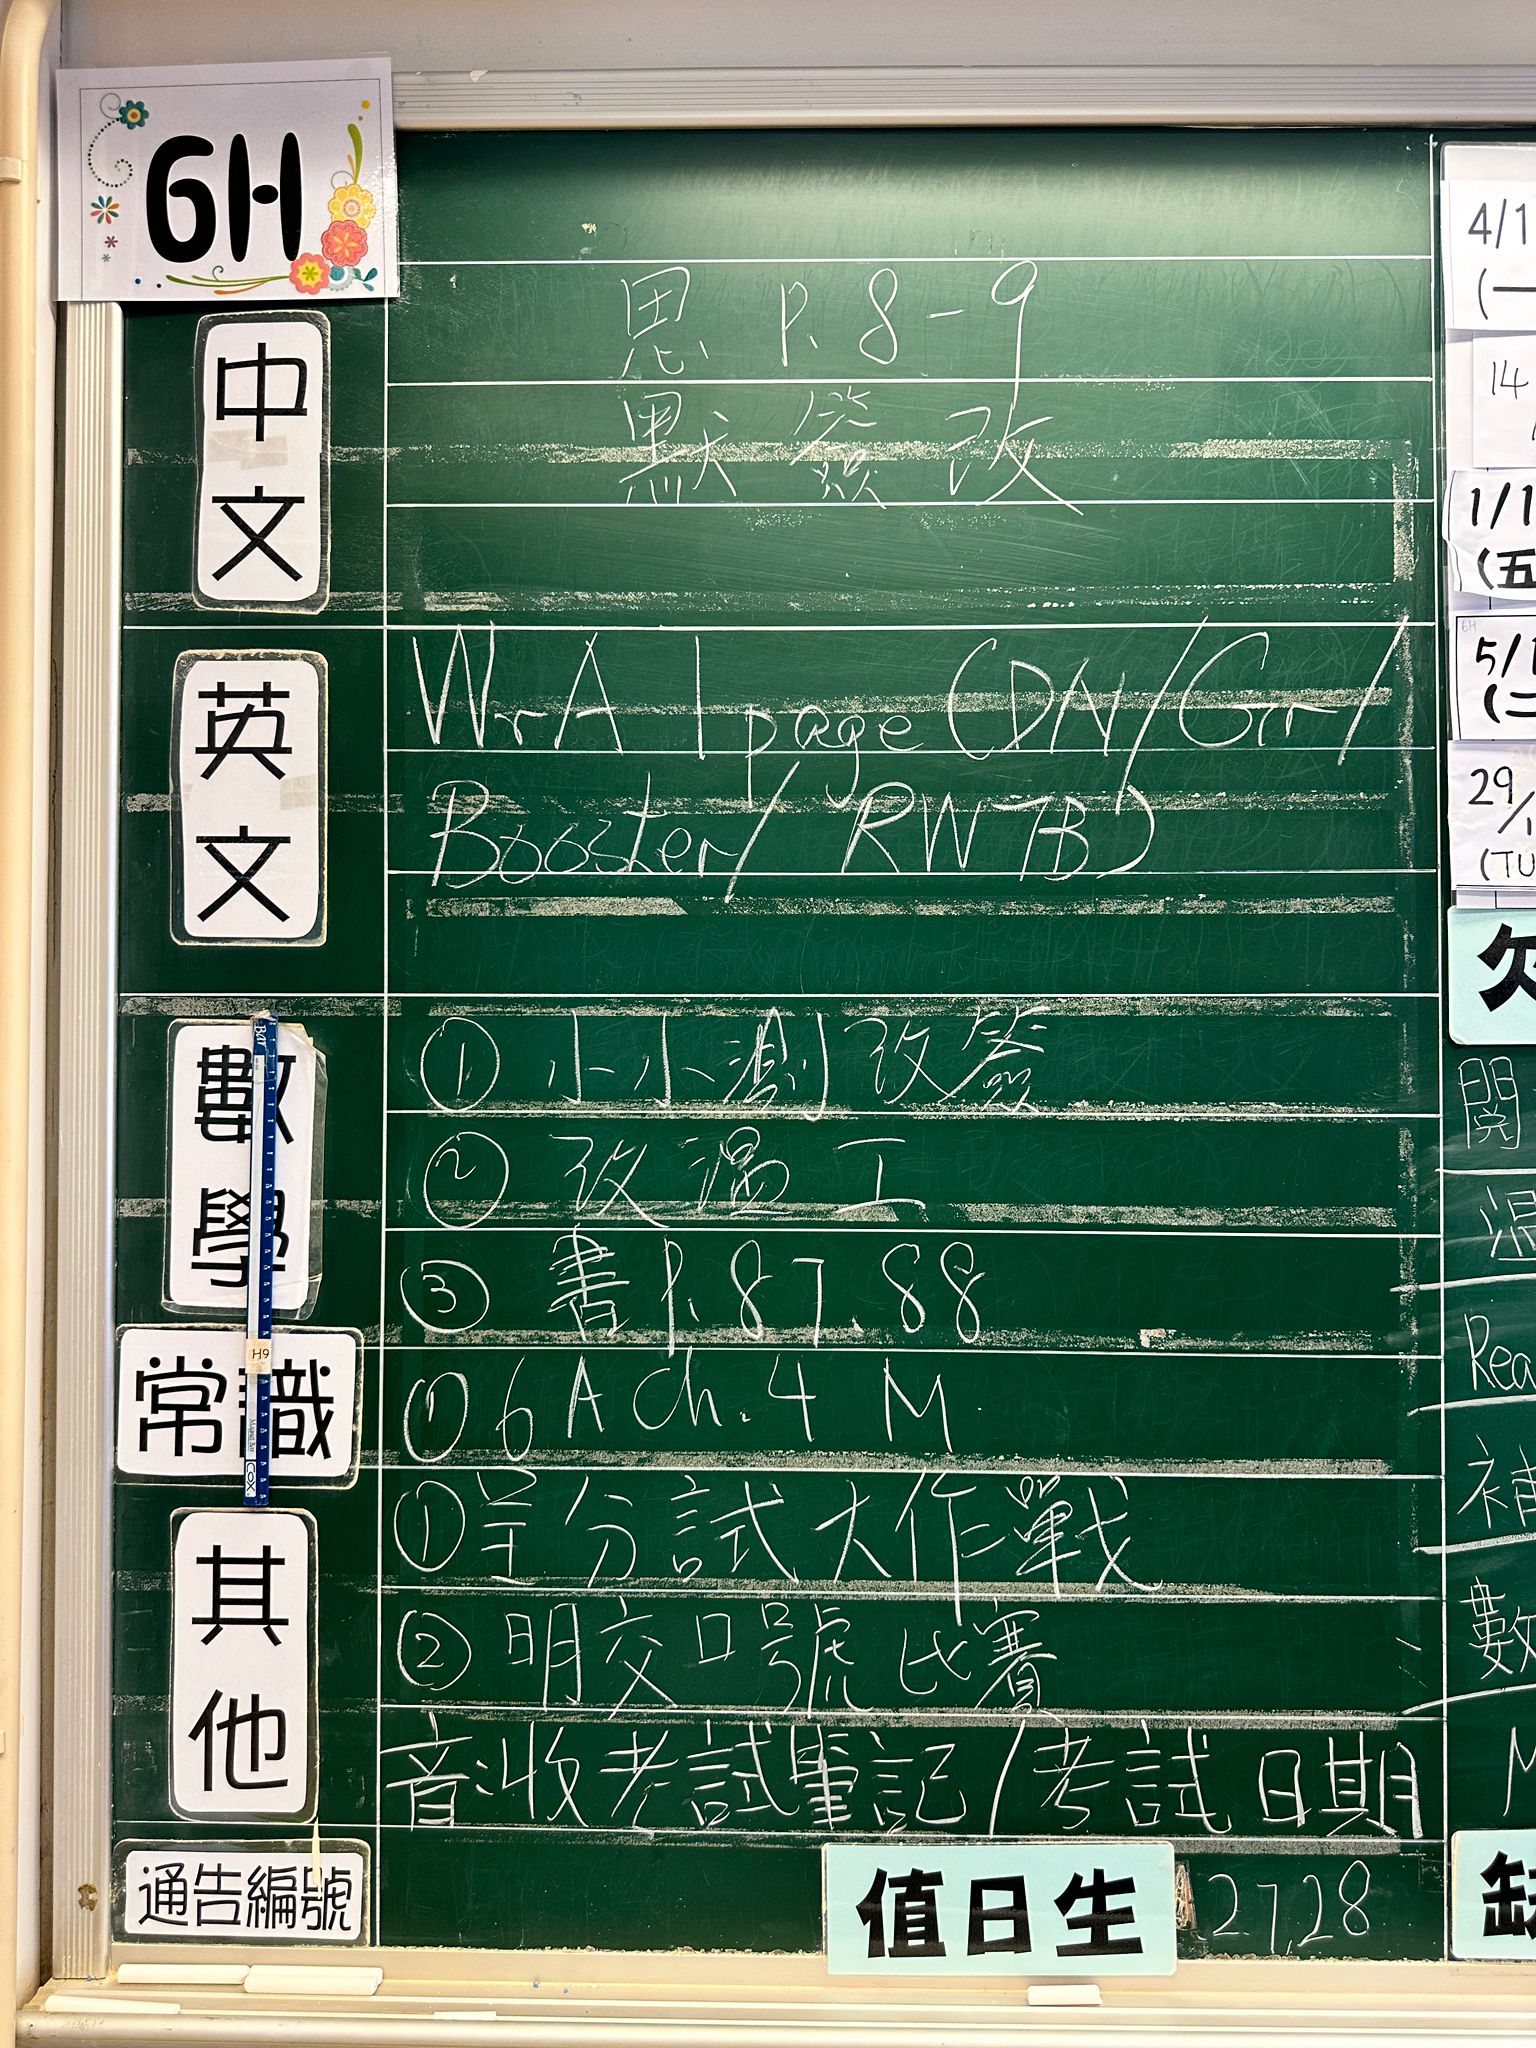 6H
中文
思 P. 8-9
默簽改
英文
WrA 1 page (DN/Gr/
Booster/ RW 7B)
數學
① 小小測改簽
② 改溫工
③ 書 P. 87. 88
常識
① 6A Ch. 4 M
其他
① 呈分試大作戰
② 明交口號比賽
音:收考試筆記/考試日期
通告編號
值日生
27, 28
4/1
(一
14
1/1
(五
5/1
(二
29/1
(TU
欠
閱
Rea
補
數
M
缺